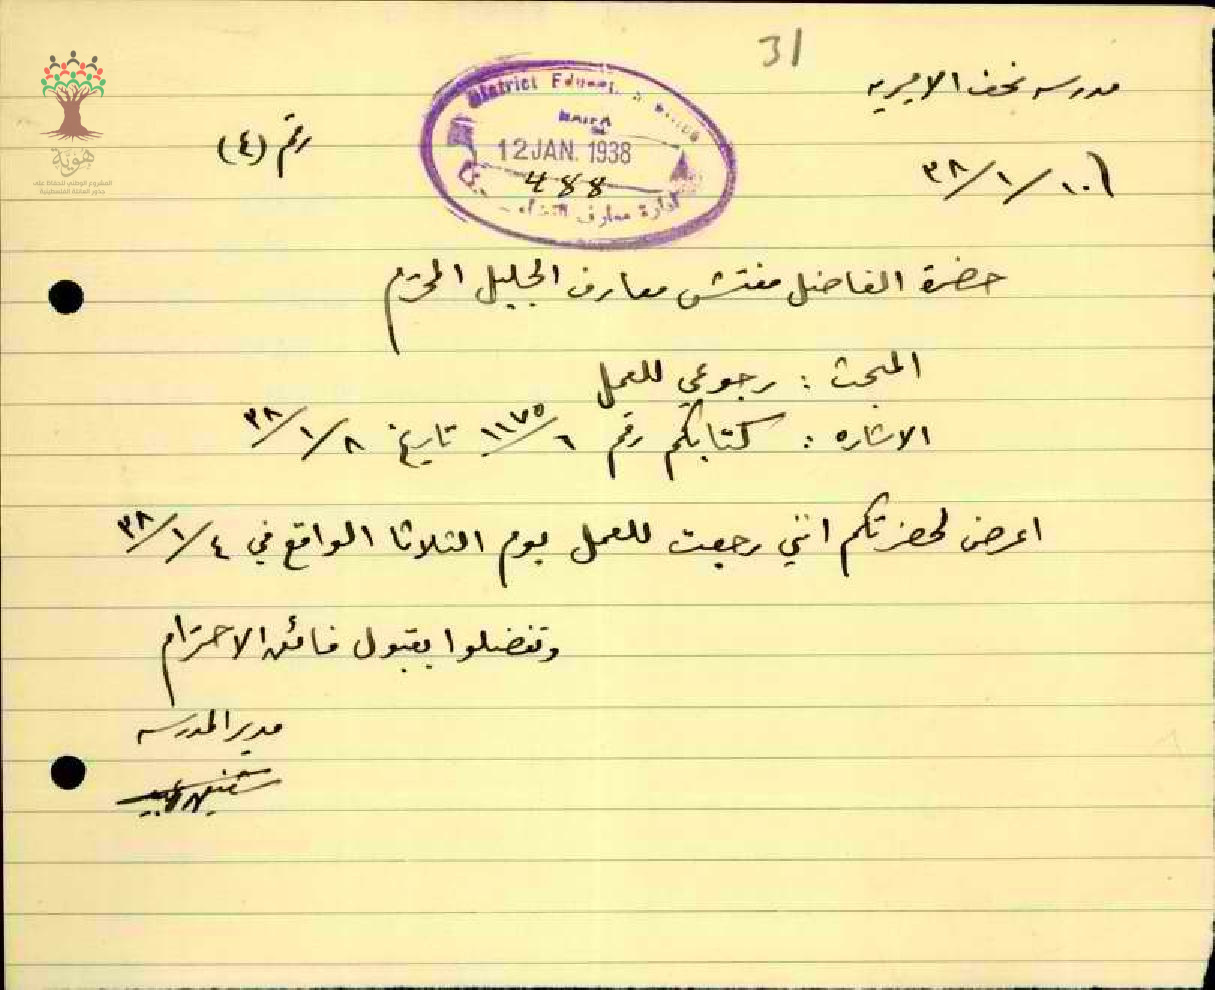 31
مدرسه نحف الاميريه
١٠/١/٣٨
رقم (٤)
District Educat
HAIFA
12 JAN. 1938
488
ادارة معارف اللواء
حضرة الفاضل مفتش معارف الجليل المحترم
المبحث : رجوعي للعمل
الاشاره : كتابكم رقم ٦/١١٧٥ تاريخ ٨/١/٣٨
اعرض لحضرتكم انني رجعت للعمل يوم الثلاثا الواقع في ٤/١/٣٨
وتفضلوا بقبول فائق الاحترام
مدير المدرسه
هوية
المشروع الوطني للحفاظ على
جذور العائلة الفلسطينية